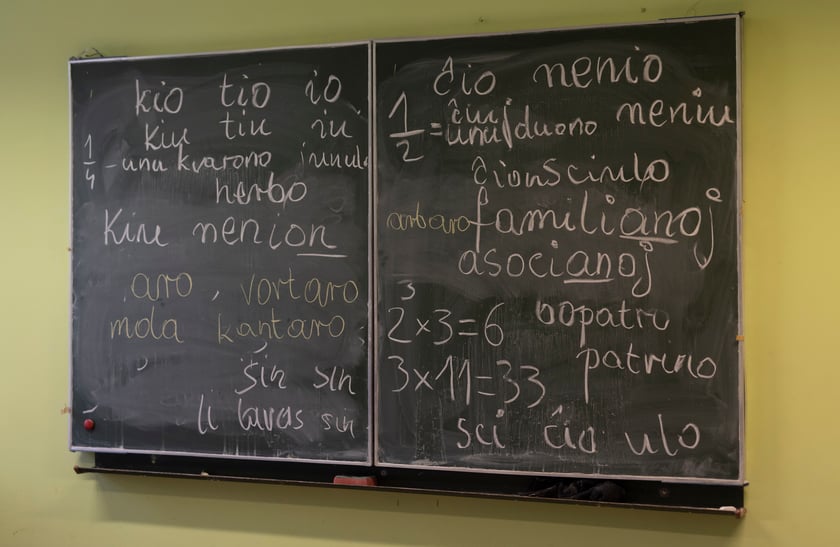 kio tio io
kiu tiu iu
1/4 - unu kvarono
herbo
Kiu nenion
aro, vortaro
mola kantaro
ŝin sin
li lavas sin
ĉio nenio
ĉiuj neniu
1/2 = unu duono
ĉionsciulo
arbaro familianoj
asocianoj
2×3=6 bopatro
3×11=33 patrino
sci ĉio ulo